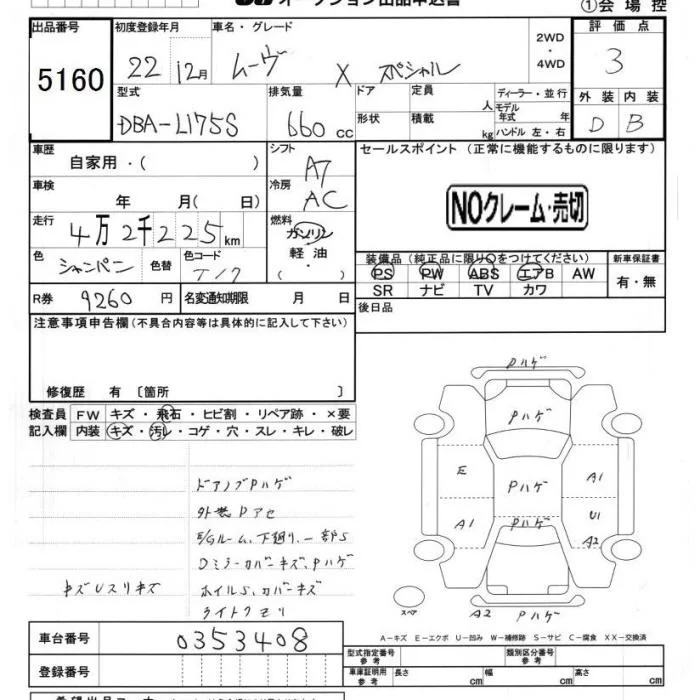 オークション出品申込書
①会場控
出品番号 初度登録年月 車名・グレード 2WD・4WD 評価点
5160 22 12月 ムーヴ X スペシャル 3
型式 排気量 ドア 定員 人 ディーラー・並行 外装 内装
DBA-L175S 660 cc 形状 積載 kg モデル年式 年 ハンドル 左・右 D B
車歴 自家用・( ) シフト A7 セールスポイント (正常に機能するものに限ります)
車検 年 月( 日) 冷房 AC NOクレーム・売切
走行 4万2千225km 燃料 ガソリン
軽油
・( )
色 シャンパン 色替 色コード T17
装備品 (純正品に限り○をつけてください) 新車保証書
PS PW ABS エアB AW 有・無
SR ナビ TV カワ
R券 9260円 名変通知期限 月 日 後日品
注意事項申告欄(不具合内容等は具体的に記入して下さい)
修復歴 有 〔箇所 〕
検査員 FW キズ・飛石・ヒビ割・リペア跡・×要
記入欄 内装 キズ・汚レ・コゲ・穴・スレ・キレ・破レ
ドアノブPハゲ
外装Pアセ
E/Gルーム、下廻り、一部S
Dミラーカバーキズ、Pハゲ
キズUスリキズ ホイルS、カバーキズ
ライトクモリ
Pハゲ
Pハゲ
E Pハゲ A1
A1 Pハゲ U1
A2
スペア A2 Pハゲ
A-キズ E-エクボ U-凹み W-補修跡 S-サビ C-腐食 XX-交換済
車台番号 0353408
型式指定番号 参考 類別区分番号 参考
登録番号 車庫証明用 参考 長さ cm 幅 cm 高さ cm